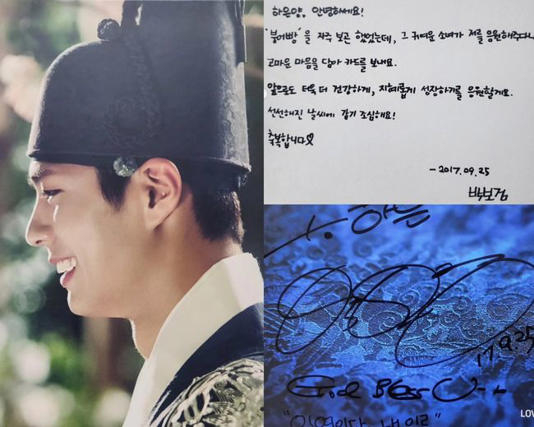 하은양, 안녕하세요!
'붕어빵'을 자주 보곤 했었는데, 그 귀여운 소녀가 저를 응원해주다니
고마운 마음을 담아 카드를 보내요.
앞으로도 더욱 더 건강하게, 지혜롭게 성장하기를 응원할게요.
선선해진 날씨에 감기 조심해요!
축복합니다♡
- 2017.09.25
박보검
17.9.25
God Bless U
LOV